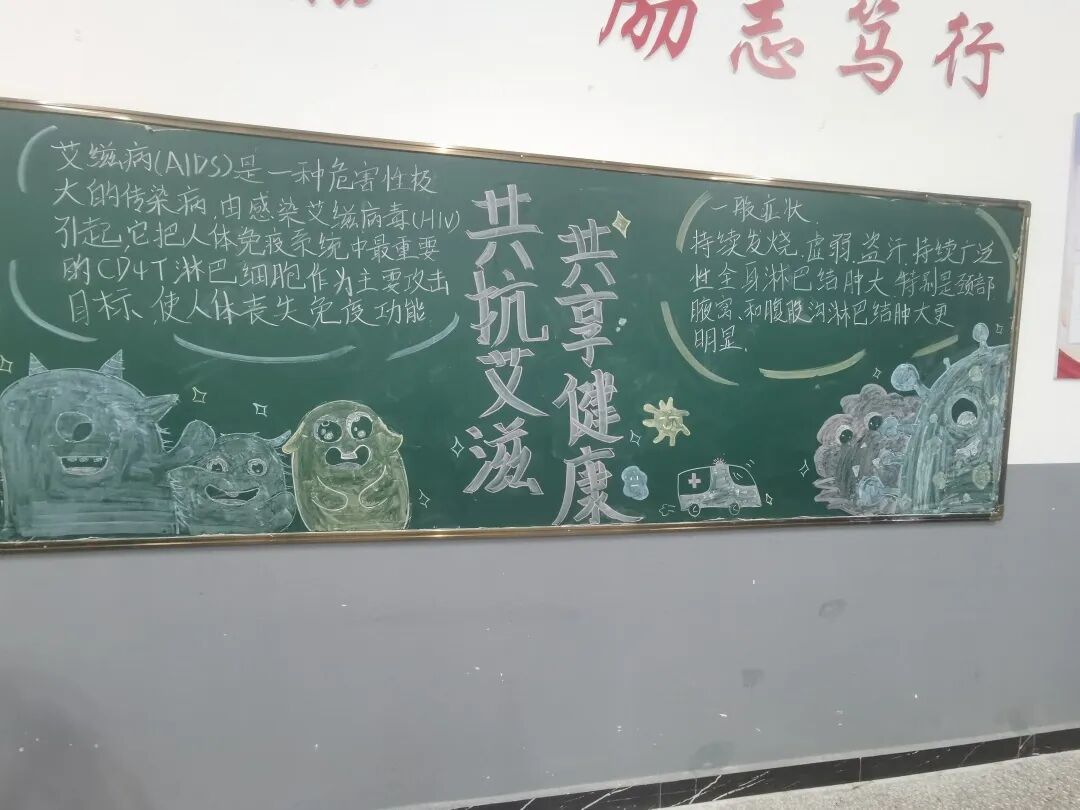 励志笃行
艾滋病(AIDS)是一种危害性极
大的传染病,由感染艾滋病毒(HIV)
引起,它把人体免疫系统中最重要
的CD4T淋巴细胞作为主要攻击
目标,使人体丧失免疫功能
共抗艾滋
共享健康
一般症状
持续发烧、虚弱、盗汗,持续广泛
性全身淋巴结肿大,特别是颈部
腋窝、和腹股沟淋巴结肿大更
明显.